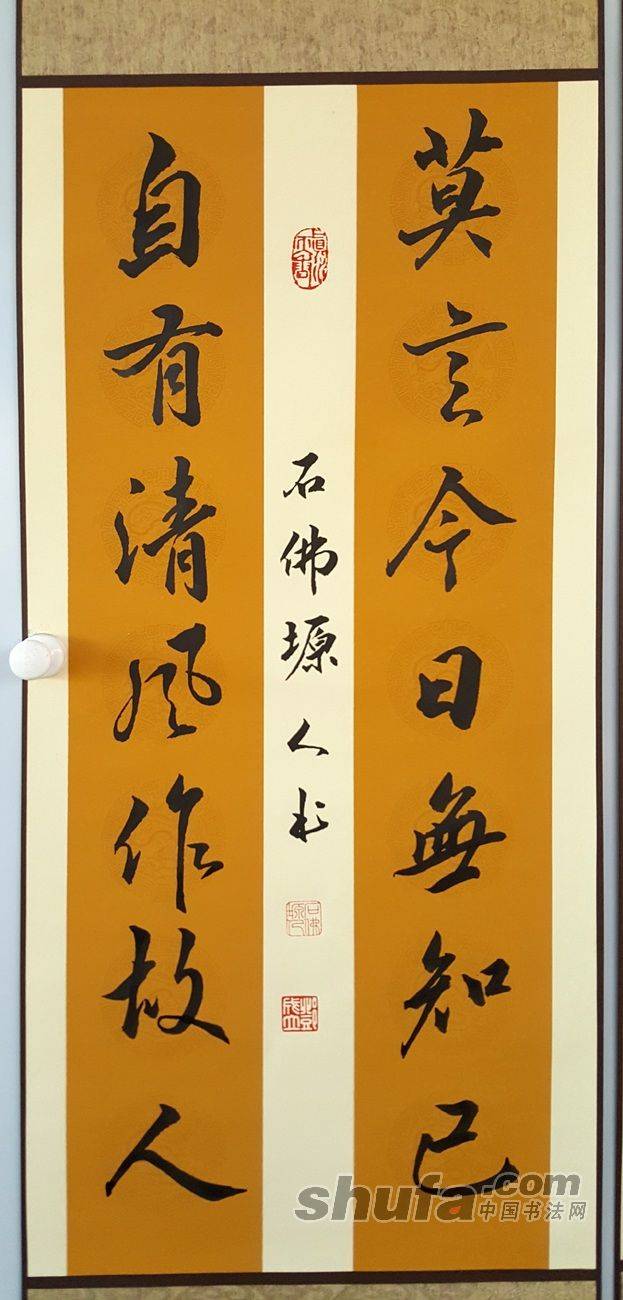 莫言今日無知己
自有清风作故人
石佛塬人书
shufa.com
中国书法网